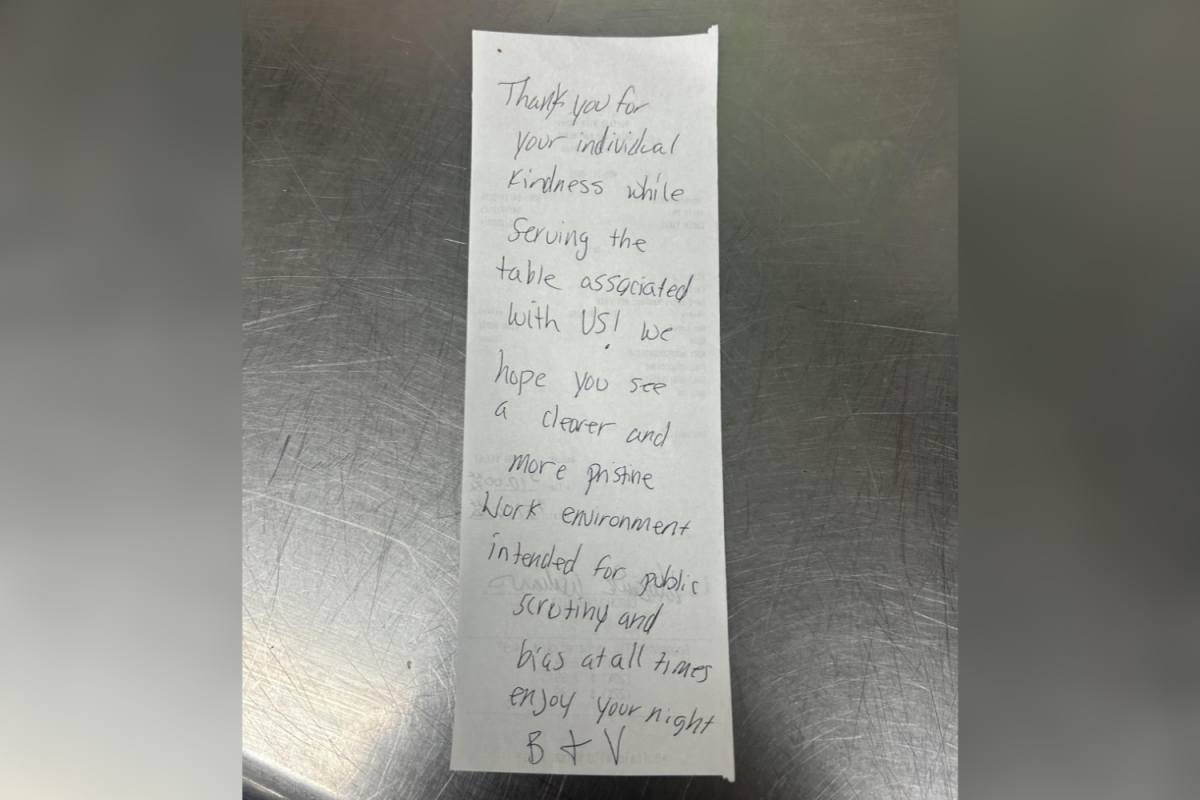 Thank you for
your individual
kindness while
serving the
table associated
with US! we
hope you see
a clearer and
more pristine
Work environment
intended for public
scrutiny and
bias at all times
enjoy your night
B + V